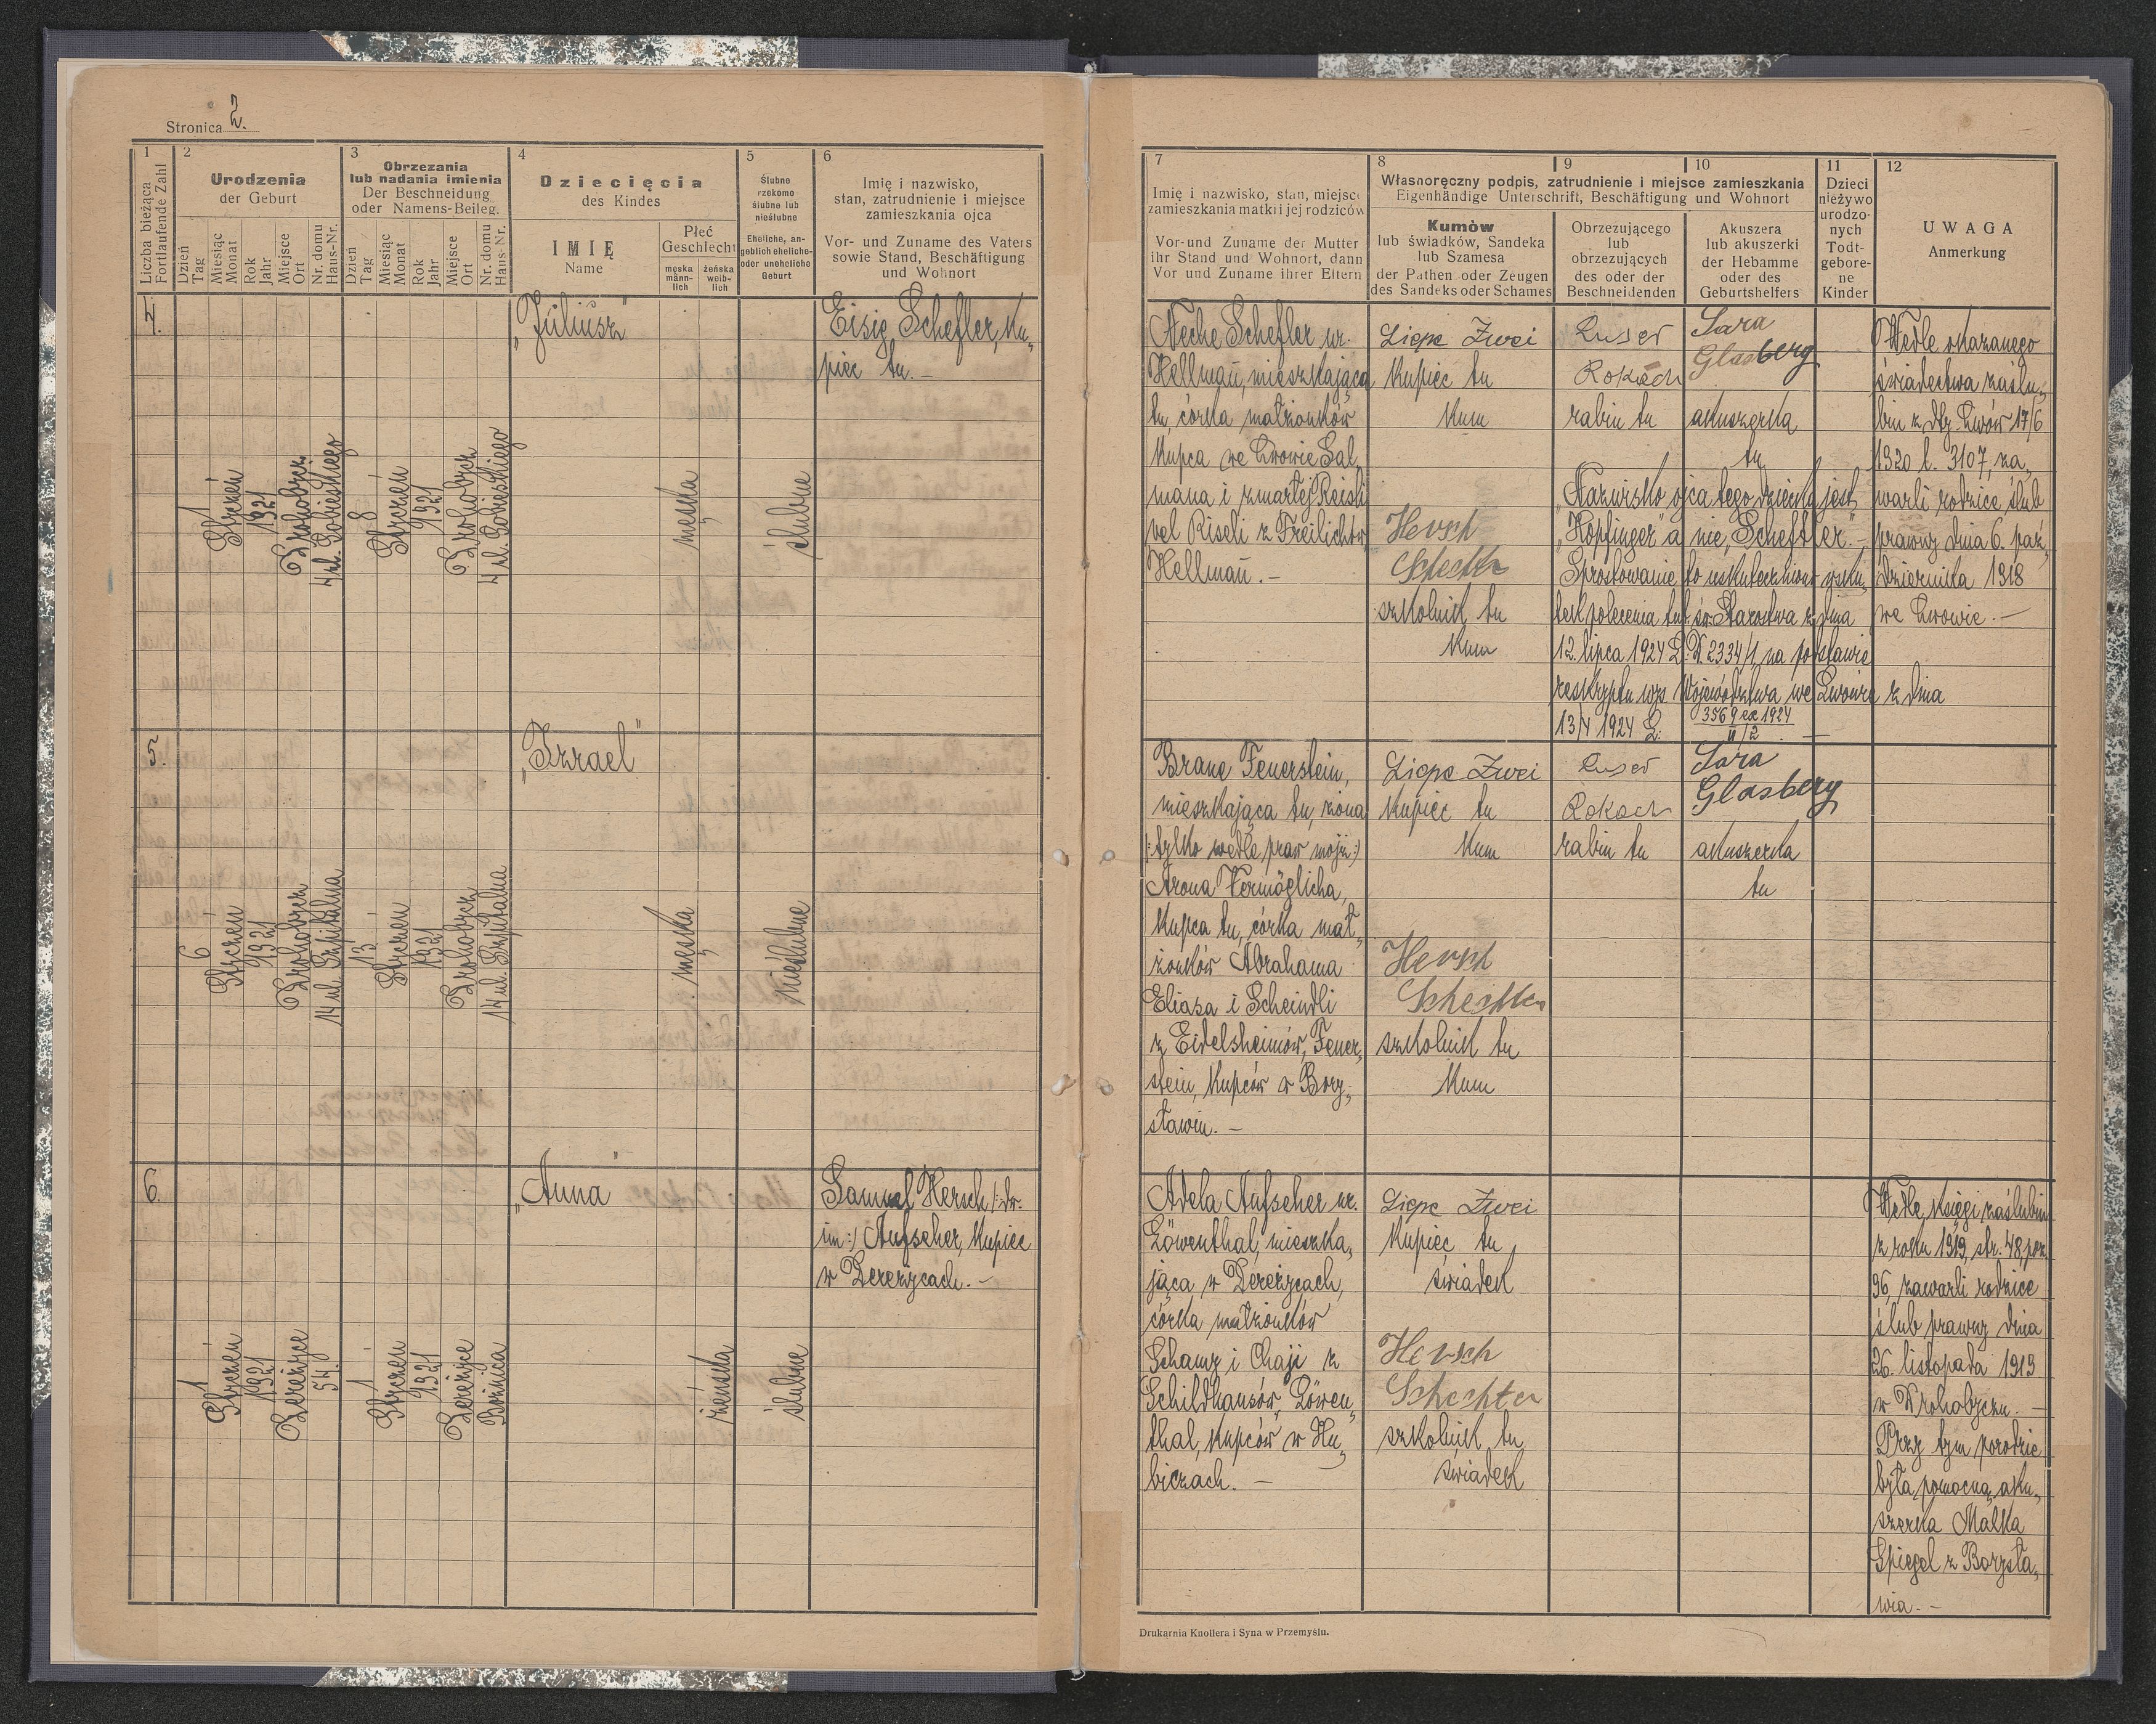 Stronica 2.
1
Liczba bieżąca
Fortlaufende Zahl
2
Urodzenia
der Geburt
Dzień
Tag
Miesiąc
Monat
Rok
Jahr
Miejsce
Ort
Nr. domu
Haus-Nr.
3
Obrzezania
lub nadania imienia
Der Beschneidung
oder Namens-Beileg.
Dzień
Tag
Miesiąc
Monat
Rok
Jahr
Miejsce
Ort
Nr. domu
Haus-Nr.
4
Dziecięcia
des Kindes
IMIĘ
Name
Płeć
Geschlecht
męska
männ-
lich
żeńska
weib-
lich
5
Ślubne
rzekomo
ślubne lub
nieślubne
Eheliche, an-
geblich eheliche-
oder uneheliche
Geburt
6
Imię i nazwisko,
stan, zatrudnienie i miejsce
zamieszkania ojca
Vor- und Zuname des Vaters
sowie Stand, Beschäftigung
und Wohnort
7
Imię i nazwisko, stan, miejsce
zamieszkania matki i jej rodziców
Vor-und Zuname der Mutter
ihr Stand und Wohnort, dann
Vor und Zuname ihrer Eltern
8
9
10
Własnoręczny podpis, zatrudnienie i miejsce zamieszkania
Eigenhändige Unterschrift, Beschäftigung und Wohnort
Kumów
lub świadków, Sandeka
lub Szamesa
der Pathen oder Zeugen
des Sandeks oder Schames
Obrzezującego
lub
obrzezujących
des oder der
Beschneidenden
Akuszera
lub akuszerki
der Hebamme
oder des
Geburtshelfers
11
Dzieci
nieżywo
urodzo-
nych
Todt-
gebore-
ne
Kinder
12
UWAGA
Anmerkung
4.
1
Styczeń
1921
Drohobycz
4 ul. Sobieskiego
8
Styczeń
1921
Drohobycz
4 ul. Sobieskiego
„Juliusz"
męska
ślubne
Eisig Schefler, ku„
piec tu.-
Neche Schefler ur.
Hellman̄, mieszkająca
tu, córka małżonków
kupca we Lwowie Sal„
mana i zmarłej Reisli
vel Riseli z Freilichów
Hellman̄.-
Liepe Zwei
kupiec tu
kum
Hersch
Schechter
szkolnik tu
kum
Rokach
rabin tu
Sara
Glasberg
akuszerka
tu
„Nazwisko ojca tego dziecka jest
„Hopfinger" a nie „Scheffler".-
Sprostowanie to uskuteczniono wsku„
tek polecenia tut. św. Starostwa z dnia
12. lipca 1924 L. D. 2334/1, na podstawie
reskryptu wys. Województwa we Lwowie z dnia
13/4 1924 L: 3569 ex 1924
II/2 . —
Wedle okazanego
świadectwa zaślu„
bin z dtg. Lwów 17/6
1920 l. 3107, za„
warli rodzice ślub
prawny dnia 6. paź„
dziernika 1918
we Lwowie.-
5.
6
Styczeń
1921
Drohobycz
14 ul. Szpitalna
13
Styczeń
1921
Drohobycz
14 ul. Szpitalna
„Izrael"
męska
nieślubne
Brane Feuerstein,
mieszkająca tu, żona
/:tylko wedle praw mojż:/
Arona Vermöglicha,
kupca tu, córka mał„
żonków Abrahama
Eliasa i Scheindli
z Eidelsheimów, Feuer„
stein, kupców w Bory„
sławiu.-
Liepe Zwei
kupiec tu
kum
Hersch
Schechter
szkolnik tu
kum
Rokach
rabin tu
Sara
Glasberg
akuszerka
tu
6.
1
Styczeń
1921
Dereżyce
54.
1
Styczeń
1921
Dereżyce
Bożnica
„Anna"
żeńska
ślubne
Samuel Hersch /:dw.
im:/ Aufseher, kupiec
w Dereżycach.-
Adela Aufseher ur.
Löwenthal, mieszka„
jąca w Dereżycach,
córka małżonków
Schamy i Chaji z
Schildhausów, Löwen„
thal, kupców w Hu„
biczach.-
Liepe Zwei
kupiec tu
świadek
Hersch
Schechter
szkolnik tu
świadek
Wedle księgi zaślubin
z roku 1919, str. 48, poz.
96, zawarli rodzice
ślub prawny dnia
26. listopada 1919
w Drohobyczu.-
Przy tym porodzie
była pomocną aku„
szerka Malka
Spiegel z Borysła„
wia.-
Drukarnia Knollera i Syna w Przemyślu.